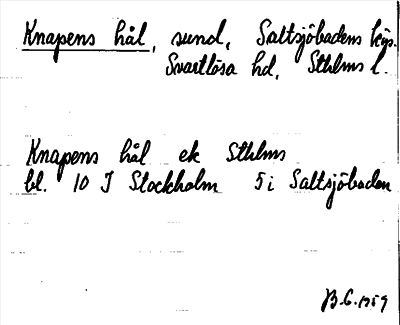 Knapens hål, sund, Saltsjöbadens kps.
Svartlösa hd, Sthlms l.
Knapens hål ek Sthlms
bl. 10 I Stockholm 5i Saltsjöbaden
B.G. 1959